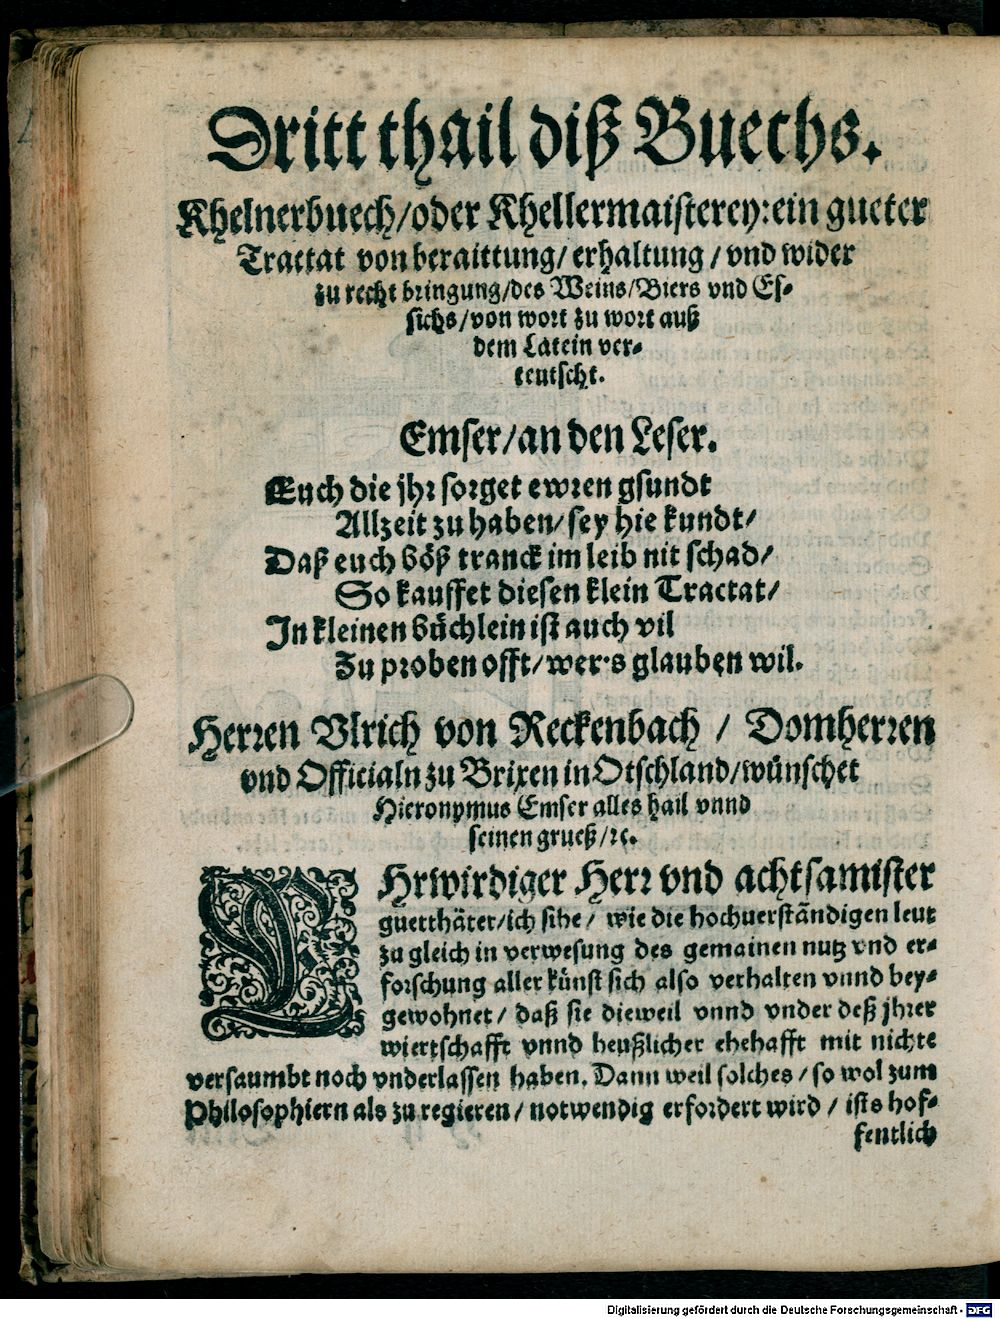 Dritt thail diß Buechs.
Khelnerbuech/oder Khellermaisterey: ein gueter
Tractat von beraittung/ erhaltung / vnd wider
zu recht bringung/des Weins/Biers vnd Es-
sichs/von wort zu wort auß
dem Latein ver-
teutscht.
Emser/an den Leser.
Euch die jhr sorget ewren gsundt
Allzeit zu haben/ sey hie kundt/
Daß euch böß tranck im leib nit schad/
So kauffet diesen klein Tractat/
In kleinen büchlein ist auch vil
Zu proben offt/ wer's glauben wil.
Herren Vlrich von Reckenbach / Domherren
vnd Officialn zu Brixen in Otschland/wünschet
Hieronymus Emser alles hail vnnd
seinen grueß/ꝛc.
EHrwirdiger Herr vnd achtsamister
guetthäter/ich sihe / wie die hochuerständigen leut
zu gleich in verwesung des gemainen nutz vnd er-
forschung aller künst sich also verhalten vnnd bey-
gewohnet / daß sie dieweil vnnd vnder deß jhrer
wiertschafft vnnd heußlicher ehehafft mit nichte
versaumbt noch vnderlassen haben. Dann weil solches / so wol zum
Philosophiern als zu regieren / notwendig erfordert wird / ists hof-
fentlich
Digitalisierung gefördert durch die Deutsche Forschungsgemeinschaft - DFG